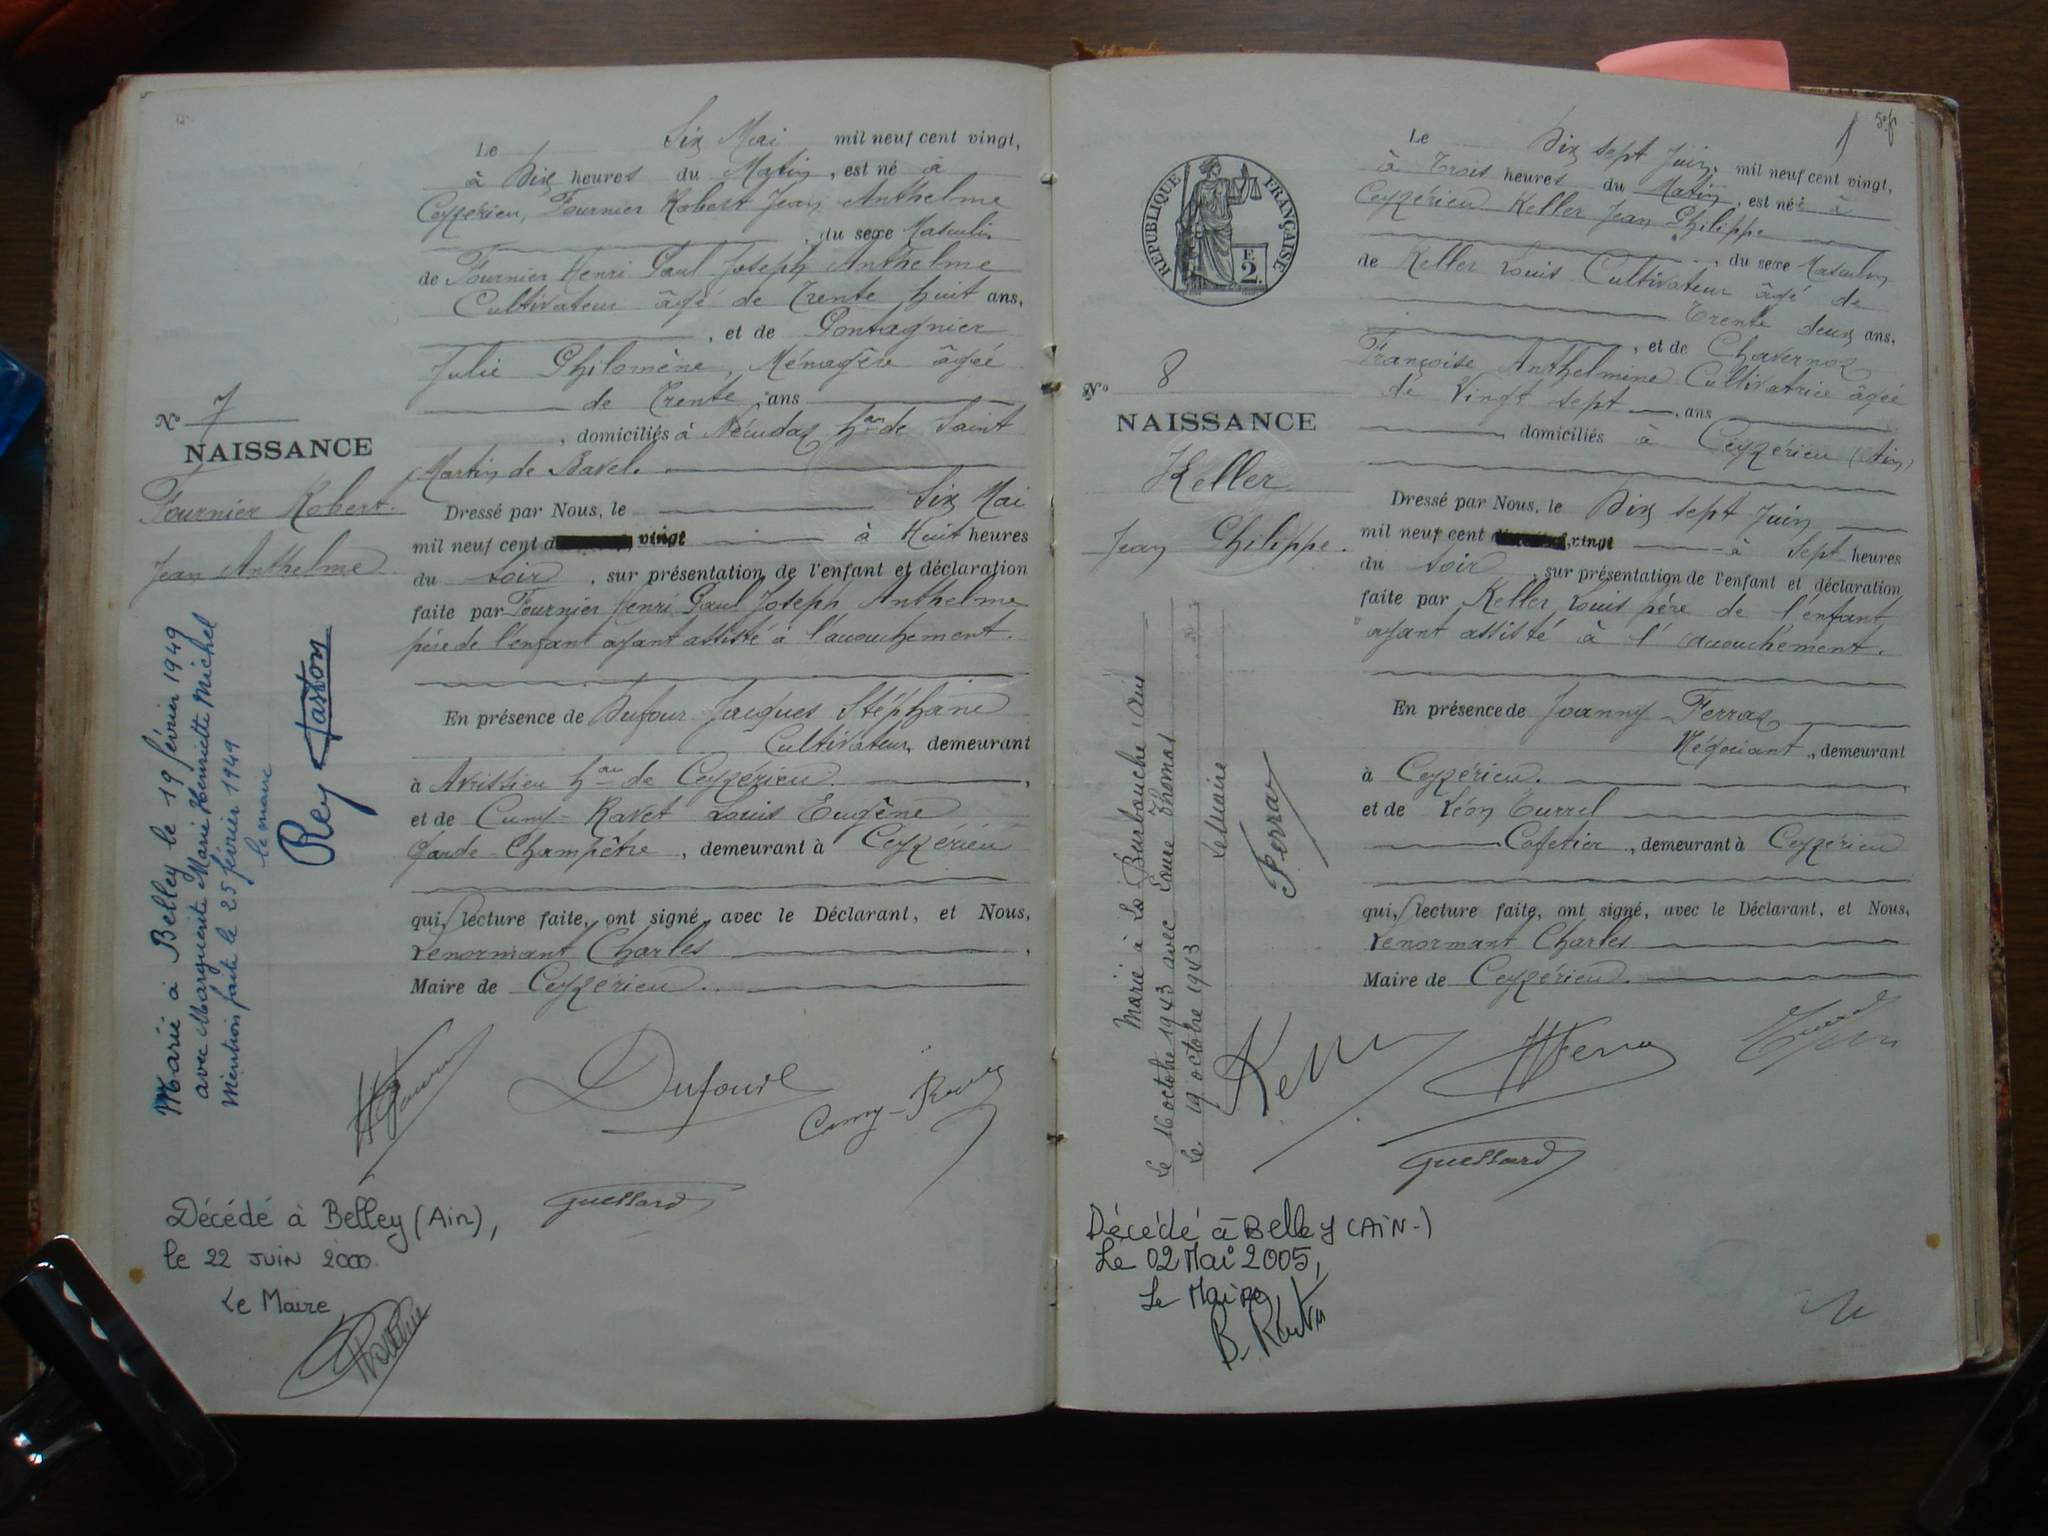 Le Six Mai mil neuf cent vingt,
à Dix heures du Matin, est né à
Ceyzérieu, Fournier Robert Jean Anthelme
, du sexe Masculin
de Fournier Henri Paul Joseph Anthelme
Cultivateur âgé de Trente huit ans,
, et de Pontagnier
Julie Philomène, Ménagère âgée
de Trente, ans
, domiciliés à hau de Saint
Martin de Bavel.
Dressé par Nous, le Six Mai
mil neuf cent vingt à Huit heures
du Soir, sur présentation de l'enfant et déclaration
faite par Fournier Henri Paul Joseph Anthelme
père de l'enfant ayant assisté à l'accouchement.
En présence de Dufour Jacques Stéphane
Cultivateur, demeurant
à Avrissieu hau de Ceyzérieu,
et de Cumy-Ravet Louis Eugène
Garde-Champêtre, demeurant à Ceyzérieu
qui, lecture faite, ont signé avec le Déclarant, et Nous,
Lenormant Charles,
Maire de Ceyzérieu.
N° 7
NAISSANCE
Fournier Robert
Jean Anthelme
Marié à Belley le 19 février 1949
avec Marguerite Marie Henriette Michel
Mention faite le 25 février 1949
le maire
Rey Gaston
Dufour
Cumy-Ravet
Guessard
Décédé à Belley (Ain),
le 22 JUIN 2000.
Le Maire
5
Le Dix sept Juin, mil neuf cent vingt,
à Trois heures du Matin, est né à
Ceyzérieu Keller Jean Philippe
, du sexe Masculin
de Keller Louis Cultivateur âgé de
Trente deux ans,
, et de Chavernoz
Françoise Anthelmine Cultivatrice âgée
de Vingt sept, ans
domiciliés à Ceyzérieu (Ain)
Dressé par Nous, le Dix sept Juin
mil neuf cent vingt à Sept heures
du Soir, sur présentation de l'enfant et déclaration
faite par Keller Louis père de l'enfant
ayant assisté à l'accouchement.
En présence de Joanny Ferraz
Négociant, demeurant
à Ceyzérieu.
et de Léon Turrel
Cafetier, demeurant à Ceyzérieu
qui, lecture faite, ont signé, avec le Déclarant, et Nous,
Lenormant Charles
Maire de Ceyzérieu.
REPUBLIQUE FRANÇAISE
F.
2.
N° 8
NAISSANCE
Keller
Jean Philippe.
Marié à La Burbanche (Ain)
Le 16 octobre 1943 avec Thomas
Le 19 octobre 1943 Le Maire
Ferraz
Keller
Ferraz
Turrel
Guessard
Décédé à Belley (AIN-)
Le 02 Mai 2005,
Le Maire